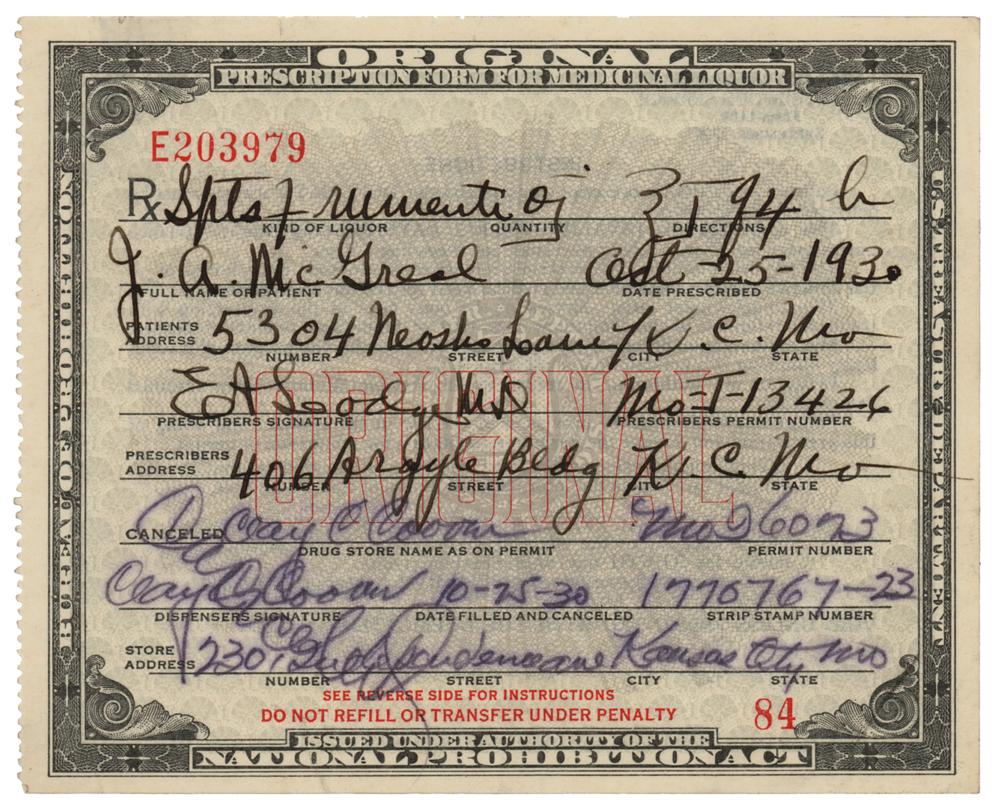 ORIGINAL
PRESCRIPTION FORM FOR MEDICINAL LIQUOR
BUREAU OF PROHIBITION
U.S. TREASURY DEPARTMENT
E203979
Rx Spts Frumenti Oj
KIND OF LIQUOR QUANTITY DIRECTIONS
J. A. McGreal Oct-25-1930
FULL NAME OF PATIENT DATE PRESCRIBED
PATIENTS ADDRESS 5304 Neosho Lane K.C. Mo
NUMBER STREET CITY STATE
ORIGINAL
E A MD Mo-I-13426
PRESCRIBERS SIGNATURE PRESCRIBERS PERMIT NUMBER
PRESCRIBERS ADDRESS 406 Argyle Bldg K.C. Mo
NUMBER STREET CITY STATE
CANCELED Clay C Mo
DRUG STORE NAME AS ON PERMIT PERMIT NUMBER
Clay C 10-25-30 1776767-23
DISPENSERS SIGNATURE DATE FILLED AND CANCELED STRIP STAMP NUMBER
STORE ADDRESS 2301 Independence ave Kansas City Mo
NUMBER STREET CITY STATE
SEE REVERSE SIDE FOR INSTRUCTIONS
DO NOT REFILL OR TRANSFER UNDER PENALTY 84
ISSUED UNDER AUTHORITY OF THE
NATIONAL PROHIBITION ACT